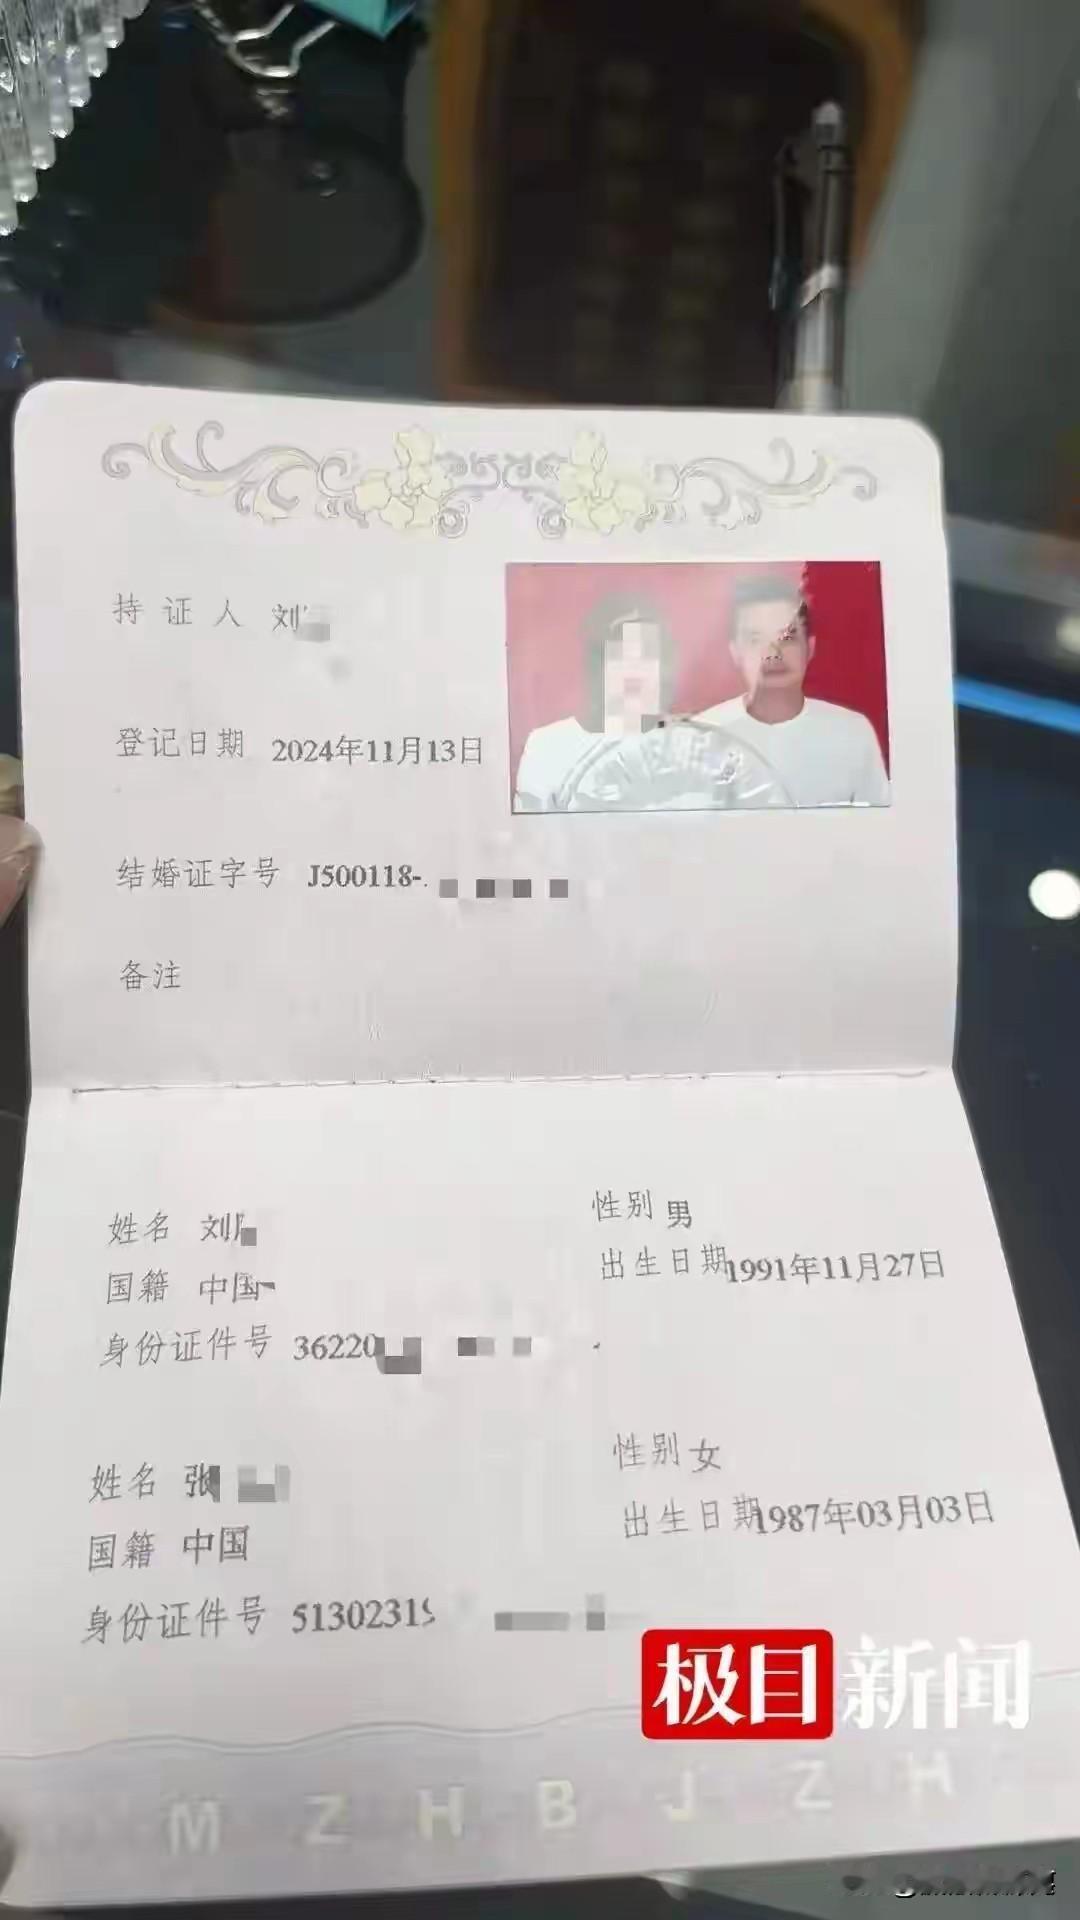 持证人 刘
登记日期 2024年11月13日
结婚证字号 J500118-
备注
姓名 刘
性别 男
国籍 中国
出生日期 1991年11月27日
身份证件号 36220
姓名 张
性别 女
国籍 中国
出生日期 1987年03月03日
身份证件号 5130231
极目新闻
MZHBJZH